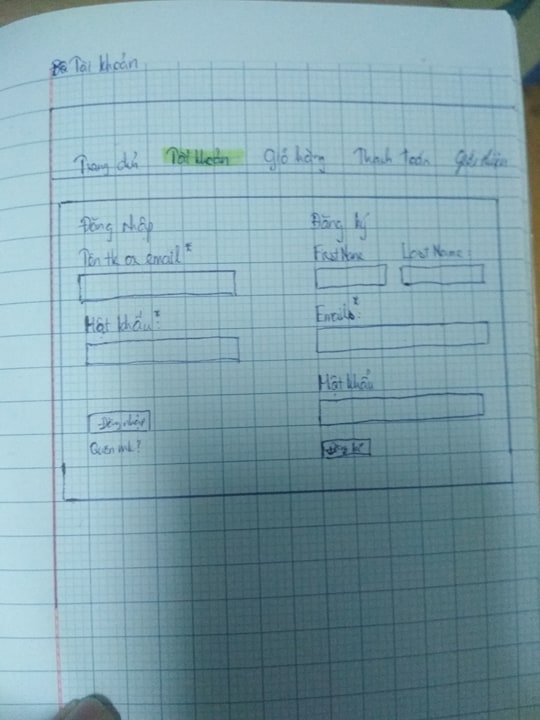 Tài khoản
Trang chủ Tài khoản Giỏ hàng Thanh toán Giới thiệu
Đăng nhập
Tên tk or email *
Mật khẩu *:
Đăng nhập
Quên mk?
Đăng ký
First Name Last Name:
Email *:
Mật khẩu
Đăng kí